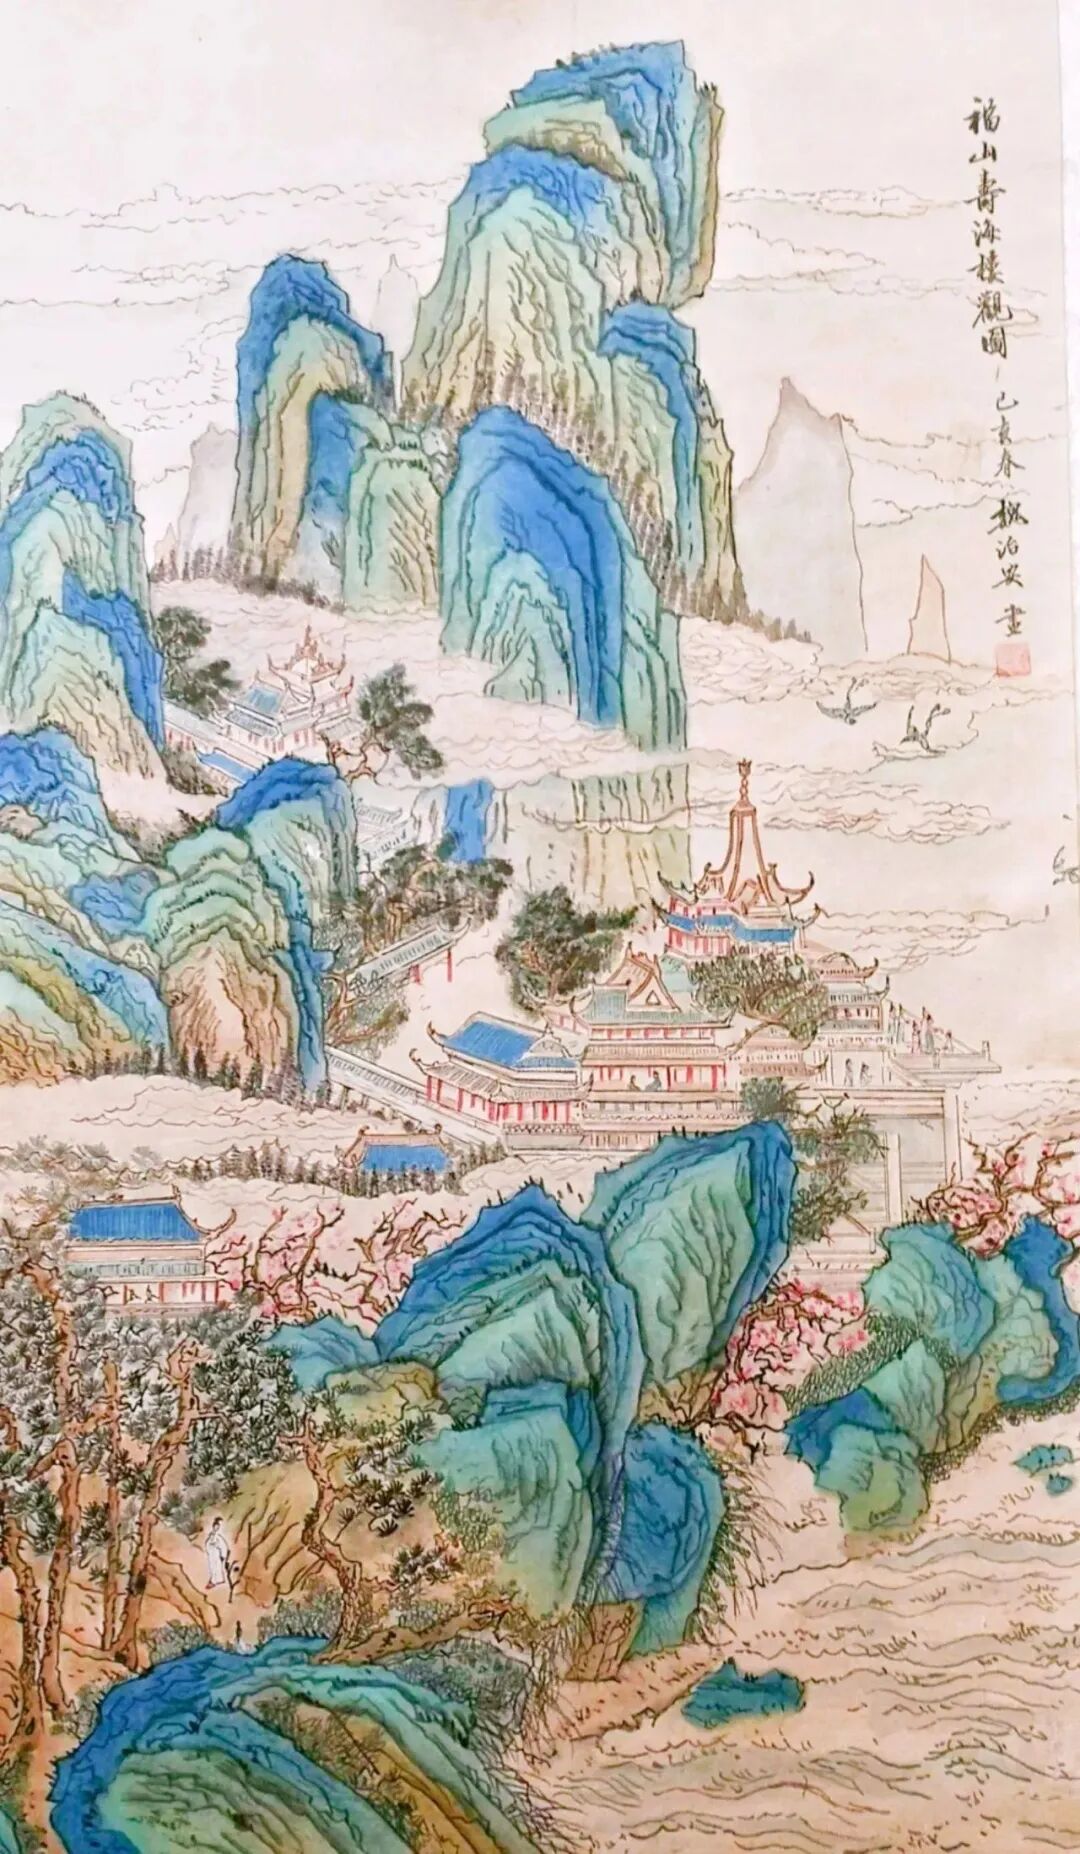 福山壽海樓觀圖 己亥春 魏治安畫